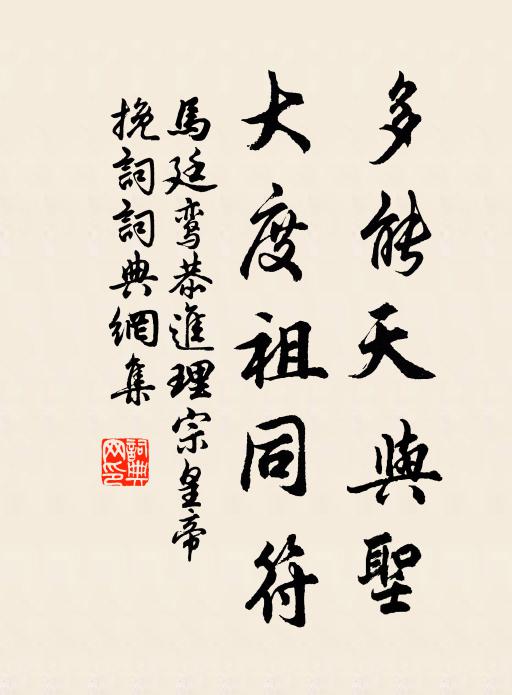 多能天與聖
大度祖同符
馬廷鸾恭進理宗皇帝
挽詞詞典網集
詞典網印